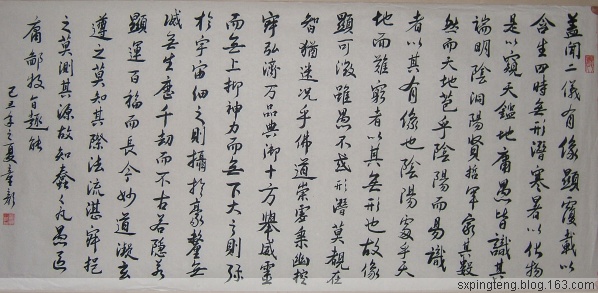 蓋聞二儀有像顯覆載以
含生四時無形潛寒暑以化物
是以窺天鑑地庸愚皆識其
端明陰洞陽賢哲罕窮其數
然而天地苞乎陰陽而易識
者以其有像也陰陽處乎天
地而難窮者以其無形也故像
顯可徵雖愚不惑形潛莫覩在
智猶迷況乎佛道崇虛乘幽控
寂弘濟万品典御十方舉威靈
而無上抑神力而無下大之則弥
於宇宙細之則攝於豪釐無
滅無生歷千劫而不古若隱若
顯運百福而長今妙道凝玄
遵之莫知其際法流湛寂挹
之莫測其源故知蠢々凡愚區
庸鄙投旨趣能
己丑年之夏
sxpingteng.blog.163.com